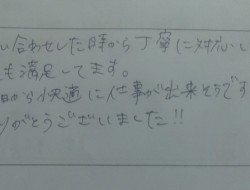 い合わせした時から丁寧に対応い
も満足してます。
日から快適に仕事が出来そうです
りがとうございました!!